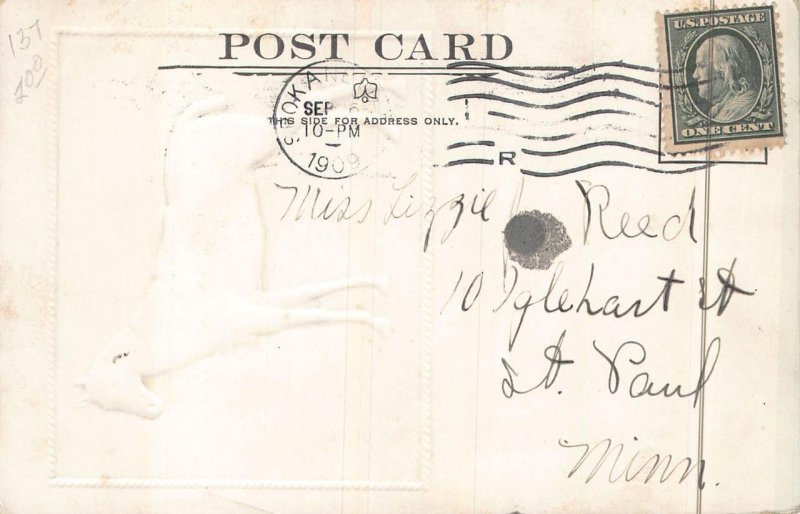 137
200
POST CARD
U.S. POSTAGE
ONE CENT
SPOKANE
SEP
10-PM
1909
THIS SIDE FOR ADDRESS ONLY.
R
Miss Lizzie Reed
10 Iglehart St
St. Paul
Minn.